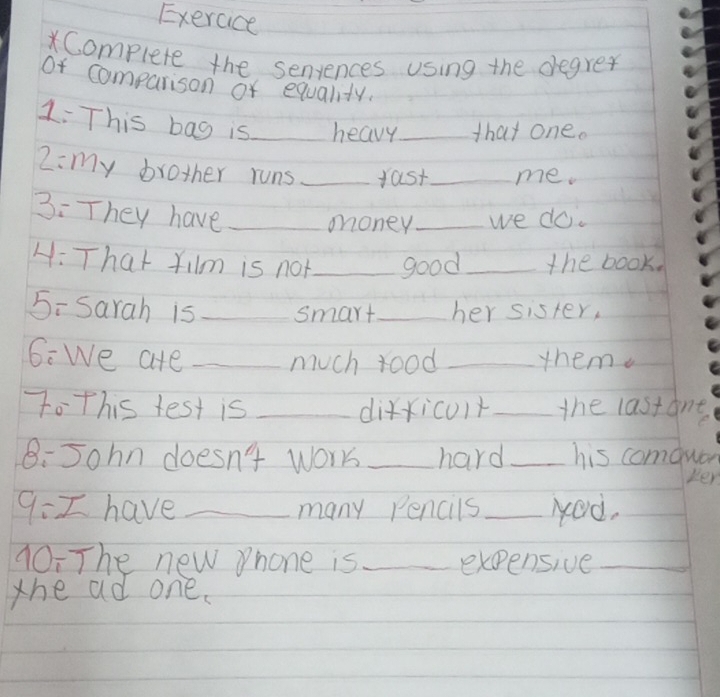 Exercice
*Complete the sentences using the degret
of comparison of equality.
1:- This bag is____ heavy____ that one.
2:- My brother runs____ fast____ me.
3:- They have____ money____ we do.
4:- That film is not____ good____ the book.
5:- Sarah is____ smart____ her sister.
6:- We ate____ much food____ them.
7:- This test is____ difficult____ the last one.
8:- John doesn't work____ hard____ his
9:- I have____ many pencils____
10:- The new phone is____ expensive____
the ad one.